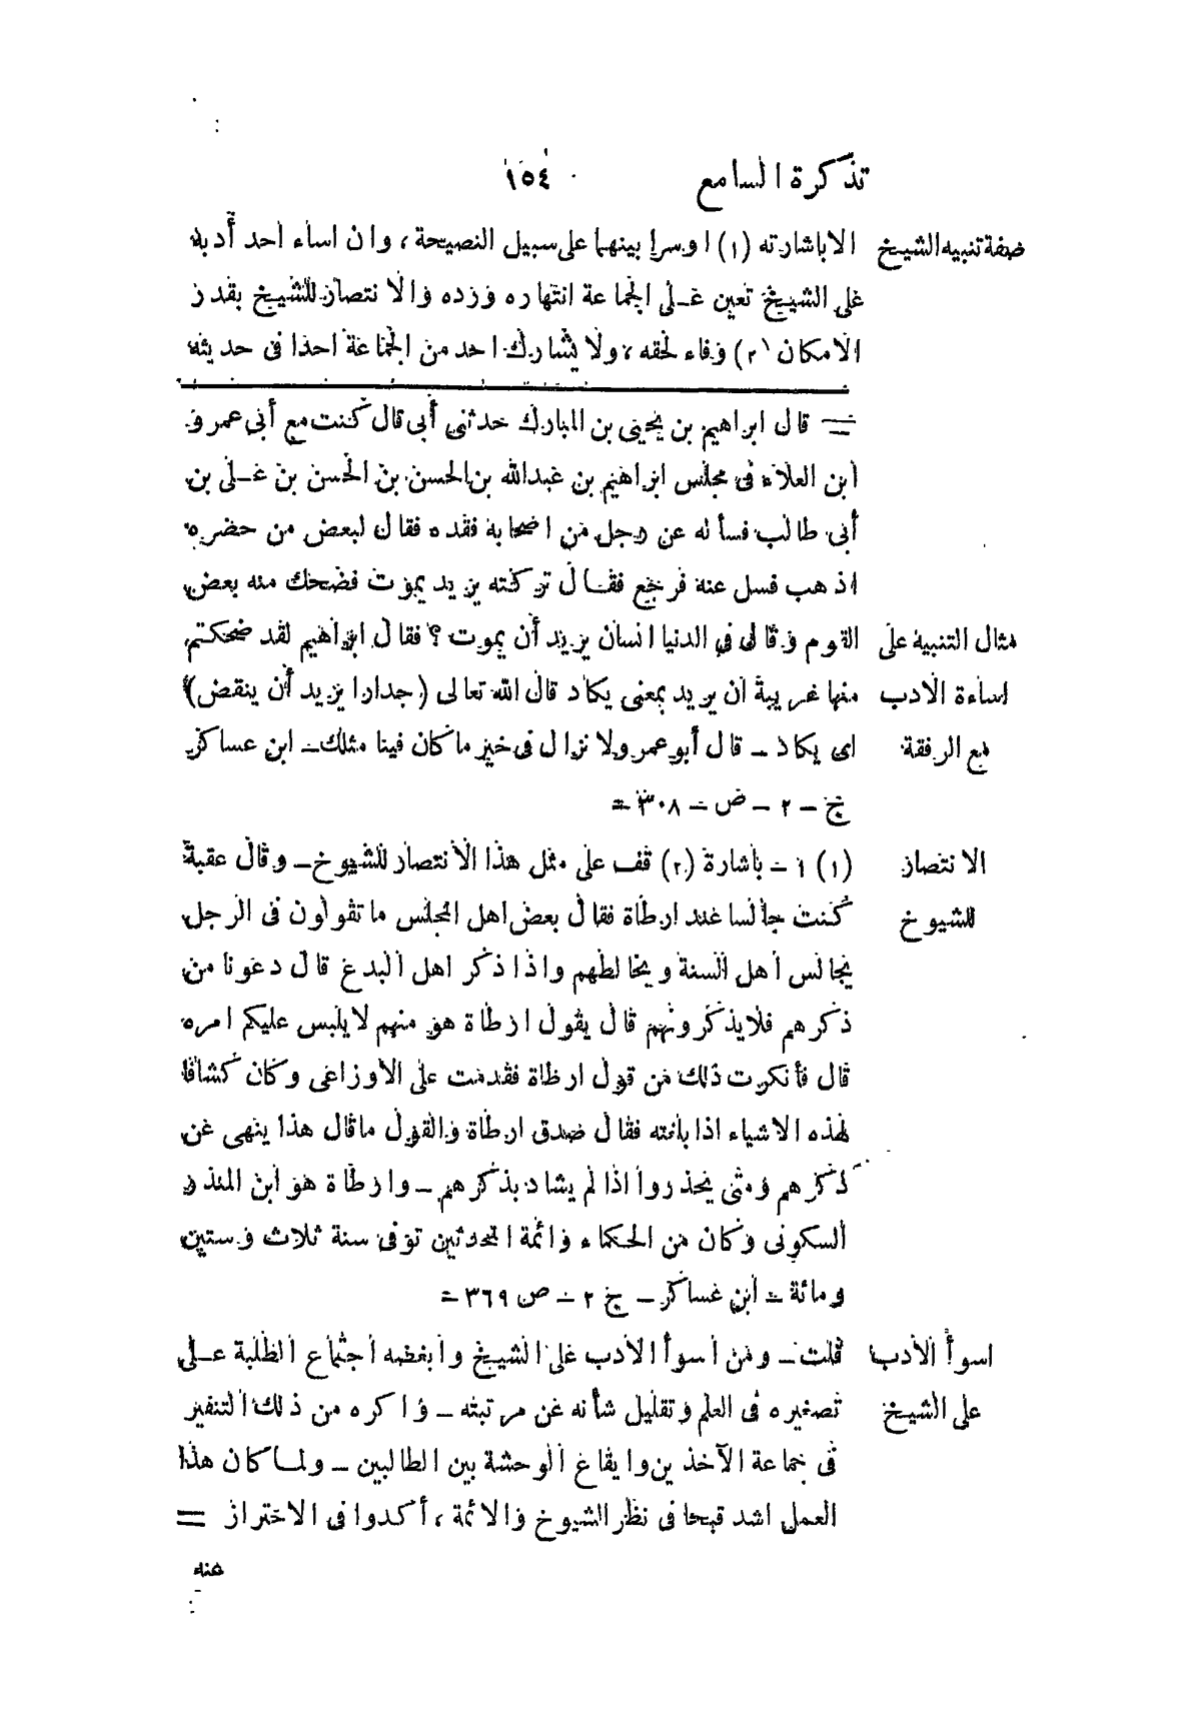 تذكرة السامع ١٥٤
صفة تنبيه الشيخ
الا باشارته (١) او سرا بينهما على سبيل النصيحة ، وان اساء احد أدبه
على الشيخ تعين على الجماعة انتهاره ورده والا نتصار للشيخ بقدر
الامكان (٢) وفاء لحقه ، ولا يشارك احد من الجماعة احدا فى حديثه
= قال ابراهيم بن يحيى بن المبارك حدثنى أبى قال كنت مع أبى عمرو
ابن العلاء فى مجلس ابراهيم بن عبدالله بن الحسن بن الحسن بن على بن
أبى طالب فسأله عن رجل من اصحابه فقده فقال لبعض من حضره
اذهب فسل عنه فرجع فقال تركته يريد يموت فضحك منه بعض
مثال التنبيه على
القوم وقال فى الدنيا انسان يريد أن يموت ؟ فقال ابراهيم لقد ضحكتم
اساءة الادب
منها غريبة ان يريد بمعنى يكاد قال الله تعالى (جدارا يريد أن ينقض)
مع الرفقة
اى يكاد ــ قال أبو عمرو لا نزال فى خير ما كان فينا مثلك ــ ابن عساكر
ج ــ ٢ ــ ص ــ ٣٠٨ =
الانتصار
(١) ١ ــ باشارة (٢) قف على مثل هذا الانتصار للشيوخ ــ وقال عقبة
للشيوخ
كنت جالسا عند ارطاة فقال بعض اهل المجلس ما تقولون فى الرجل
يجالس أهل السنة ويخالطهم واذا ذكر اهل البدع قال دعونا من
ذكرهم فلا يذكرونهم قال يقول ارطاة هو منهم لا يلبس عليكم امره
قال فأنكرت ذلك من قول ارطاة فقدمت على الاوزاعى وكان كشافا
لهذه الاشياء اذا بلغته فقال صدق ارطاة والقول ما قال هذا ينهى عن
ذكرهم ومتى يحذروا اذا لم يشاد بذكرهم ــ وارطاة هو ابن المنذر
السكونى وكان من الحكماء وائمة المحدثين توفى سنة ثلاث وستين
ومائة ــ ابن عساكر ــ ج ٢ ــ ص ٣٦٩ =
اسوأ الادب
قلت ــ ومن أسوأ الادب على الشيخ وابغضه اجتماع الطلبة على
على الشيخ
تصغيره فى العلم وتقليل شأنه عن مرتبته ــ واكره من ذلك التنفير
فى جماعة الآخذين وايقاع الوحشة بين الطالبين ــ ولما كان هذا
العمل اشد قبحا فى نظر الشيوخ والائمة ، أكدوا فى الاحتراز =
عنه